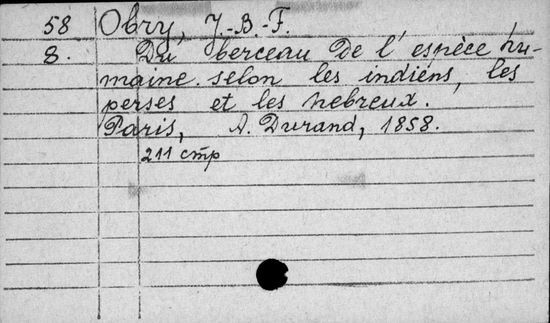 58 Obry, J.-B.-F.
8. Du berceau de l'espèce hu-
maine selon les indiens, les
perses et les hebreux.
Paris, A. Durand, 1858.
211 стр